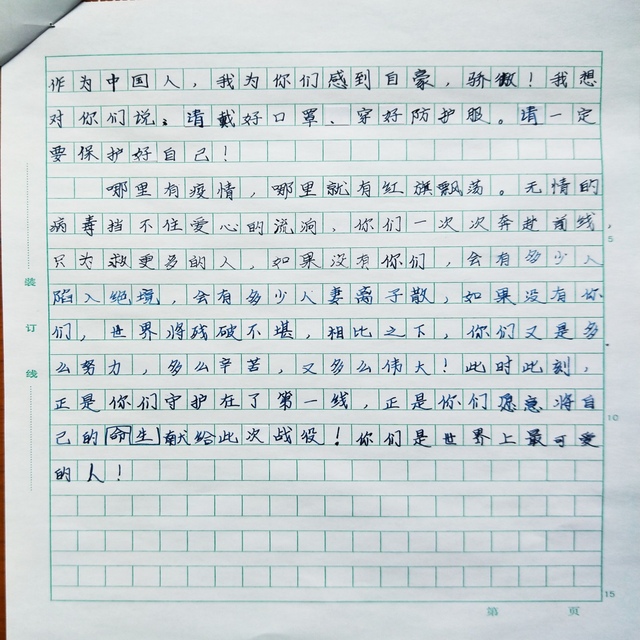 作为中国人，我为你们感到自豪，骄傲！我想
对你们说：请戴好口罩、穿好防护服。请一定
要保护好自己！
哪里有疫情，哪里就有红旗飘荡。无情的
病毒挡不住爱心的流淌，你们一次次奔赴前线，
只为救更多的人，如果没有你们，会有多少人
陷入绝境，会有多少人妻离子散，如果没有你
们，世界将残破不堪，相比之下，你们又是多
么努力，多么辛苦，又多么伟大！此时此刻，
正是你们守护在了第一线，正是你们愿意将自
己的命生献给此次战役！你们是世界上最可爱
的人！
装订线
5
10
15
第 页